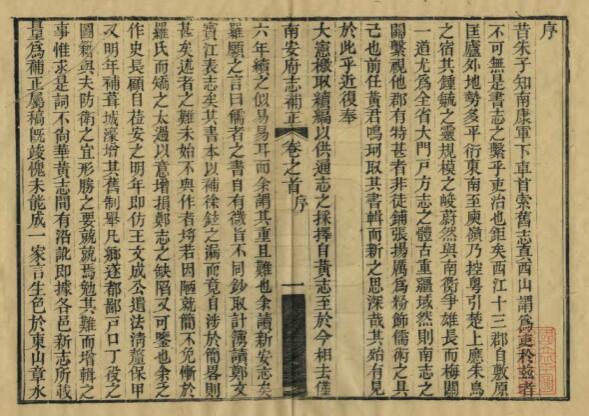 序
昔朱子知南康軍下車首索舊志直西山謂爲吏於茲者
不可無是書志之繫乎吏治也鉅矣西江十三郡自敷原
匡廬外地勢多平衍東南至庾嶺乃控粵引楚上應朱鳥
之宿其鍾毓之靈規模之峻蔚然與南衡爭雄長而梅關
一道尤爲全省大門戸方志之體古重疆域然則南志之
關繫視他郡有特甚者非徒鋪張揚厲爲粉飾儒術之具
己也前任黃君鳴珂取其書輯而新之思深哉其殆有見
於此乎近復奉
大憲檄取續編以供通志之採擇自黃志至於今相去僅
南安府志補正 卷之首 序 一
六年續之似易易耳而余謂其重且難也余讀新安志矣
羅願之言曰儒者之書自有微旨不同鈔取計簿讀鄭文
寶江表志矣其書本以補徐鉉之漏而竟自涉於簡畧則
甚矣述者之難未始不與作者埒若因陋就簡不免慚於
羅氏而矯之太過以意增損鄭志之缺陷又可鑒也余之
作史長願自蒞安之明年即仿王文成公遺法淸釐保甲
又明年補葺城濠增其舊制舉凡鄉遂都鄙戸口丁役之
圖籍與夫防衛之宜形勝之要兢兢焉勉其難而增輯之
事惟求是詞不尚華黃志間有沿訛即據各邑新志所載
量爲補正屬稿旣竣愧未能成一家言生色於東山章水